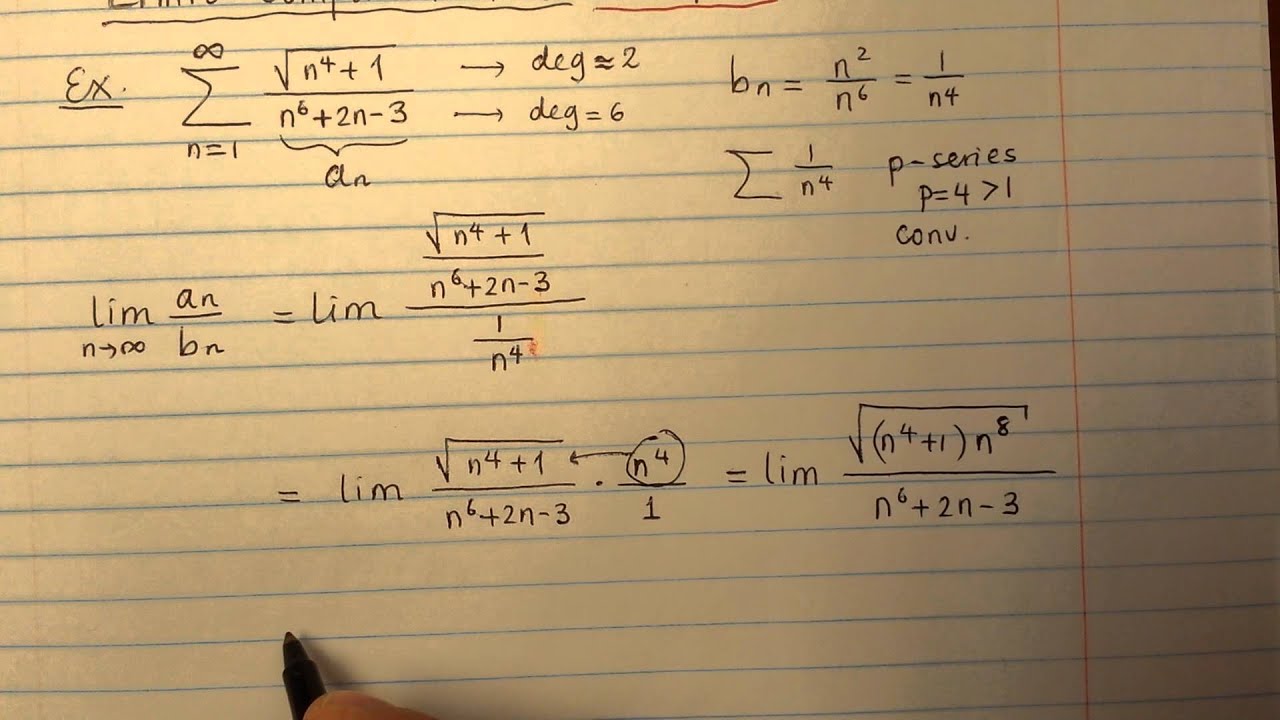 Ex. ∞ ∑ n=1 √(n⁴+1) / (n⁶+2n-3) → deg≈2 → deg=6
aₙ
bₙ = n²/n⁶ = 1/n⁴
∑ 1/n⁴ p-series
p=4>1
conv.
lim n→∞ aₙ/bₙ = lim (√(n⁴+1) / (n⁶+2n-3)) / (1/n⁴)
= lim √(n⁴+1) / (n⁶+2n-3) · n⁴/1 = lim √((n⁴+1)n⁸) / (n⁶+2n-3)